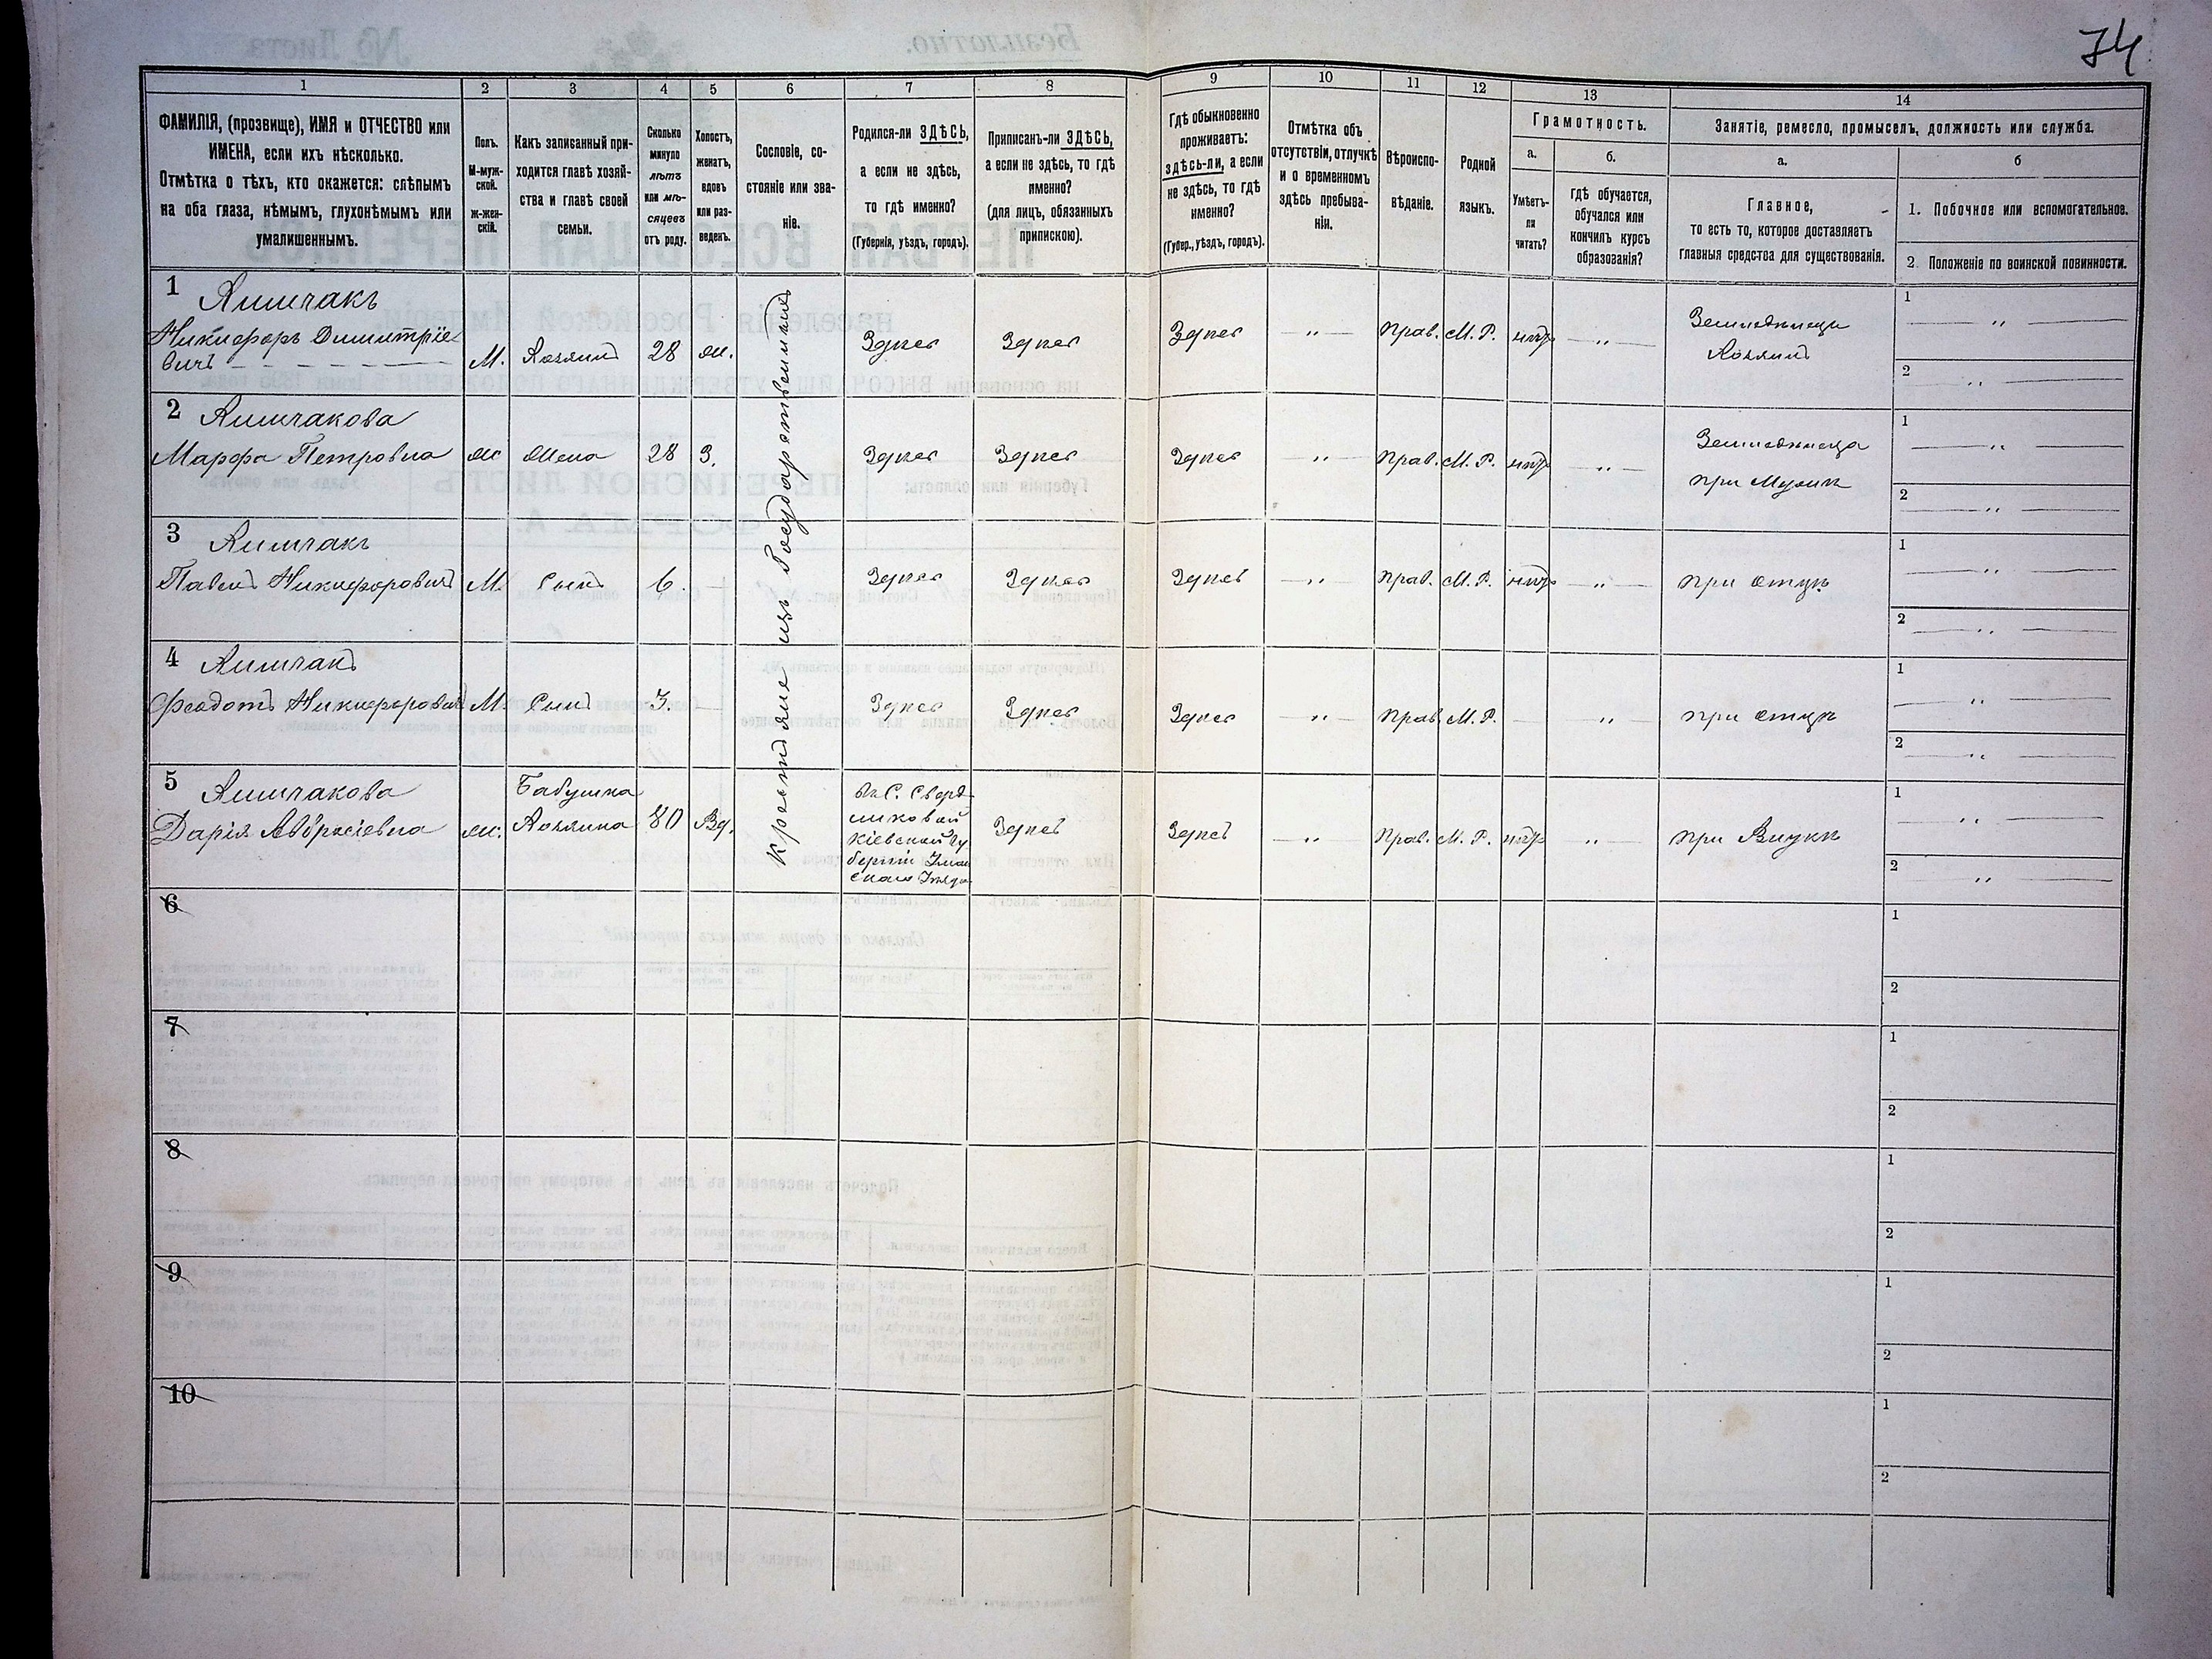 74
1 2 3 4 5 6 7 8 9 10 11 12 13 14
ФАМИЛІЯ, (прозвище), ИМЯ и ОТЧЕСТВО или
ИМЕНА, если ихъ нѣсколько.
Отмѣтка о тѣхъ, кто окажется: слѣпымъ
на оба глаза, нѣмымъ, глухонѣмымъ или
умалишеннымъ.
Полъ.
М-муж-
ской.
ж-жен-
скій.
Какъ записанный при-
ходится главѣ хозяй-
ства и главѣ своей
семьи.
Сколько
минуло
лѣтъ
или мѣ-
сяцевъ
отъ роду.
Холостъ,
женатъ,
вдовъ
или раз-
веденъ.
Сословіе, со-
стояніе или зва-
ніе.
Родился-ли ЗДѢСЬ,
а если не здѣсь,
то гдѣ именно?
(Губернія, уѣздъ, городъ).
Приписанъ-ли ЗДѢСЬ,
а если не здѣсь, то гдѣ
именно?
(для лицъ, обязанныхъ
припискою).
Гдѣ обыкновенно
проживаетъ:
здѣсь-ли, а если
не здѣсь, то гдѣ
именно?
(Губер., уѣздъ, городъ).
Отмѣтка объ
отсутствіи, отлучкѣ
и о временномъ
здѣсь пребыва-
ніи.
Вѣроиспо-
вѣданіе.
Родной
языкъ.
Грамотность.
а.
Умѣетъ-
ли
читать?
б.
гдѣ обучается,
обучался или
кончилъ курсъ
образованія?
Занятіе, ремесло, промыселъ, должность или служба.
а.
Главное,
то есть то, которое доставляетъ
главныя средства для существованія.
б
1. Побочное или вспомогательное.
2. Положеніе по воинской повинности.
Крестьяне изъ Государственныхъ
1
Никифоръ Димитріе
вичъ
М. Хозяинъ 28 ж. Здѣсь Здѣсь Здѣсь " Прав. М. Р. нѣтъ "
Земледѣлецъ
Хозяинъ
1 "
2 "
2
Марфа Петровна ж Жена 28 З. Здѣсь Здѣсь Здѣсь " Прав. М. Р. нѣтъ "
Земледѣлица
при Мужѣ
1 "
2 "
3
Павелъ Никифоровичъ М. Сынъ 6. Здѣсь Здѣсь Здѣсь " Прав. М. Р. нѣтъ " при отцѣ
1 "
2 "
4
Феодотъ Никифоровичъ М. Сынъ 3. Здѣсь Здѣсь Здѣсь " Прав. М. Р. " при отцѣ
1 "
2 "
5
Дарія
ж. Бабушка
Хозяина 80 Вд.
Кіевской Гу
берніи
Здѣсь Здѣсь " Прав. М. Р. нѣтъ " при Внукѣ
1 "
2 "
6
1
2
7
1
2
8
1
2
9
1
2
10
1
2